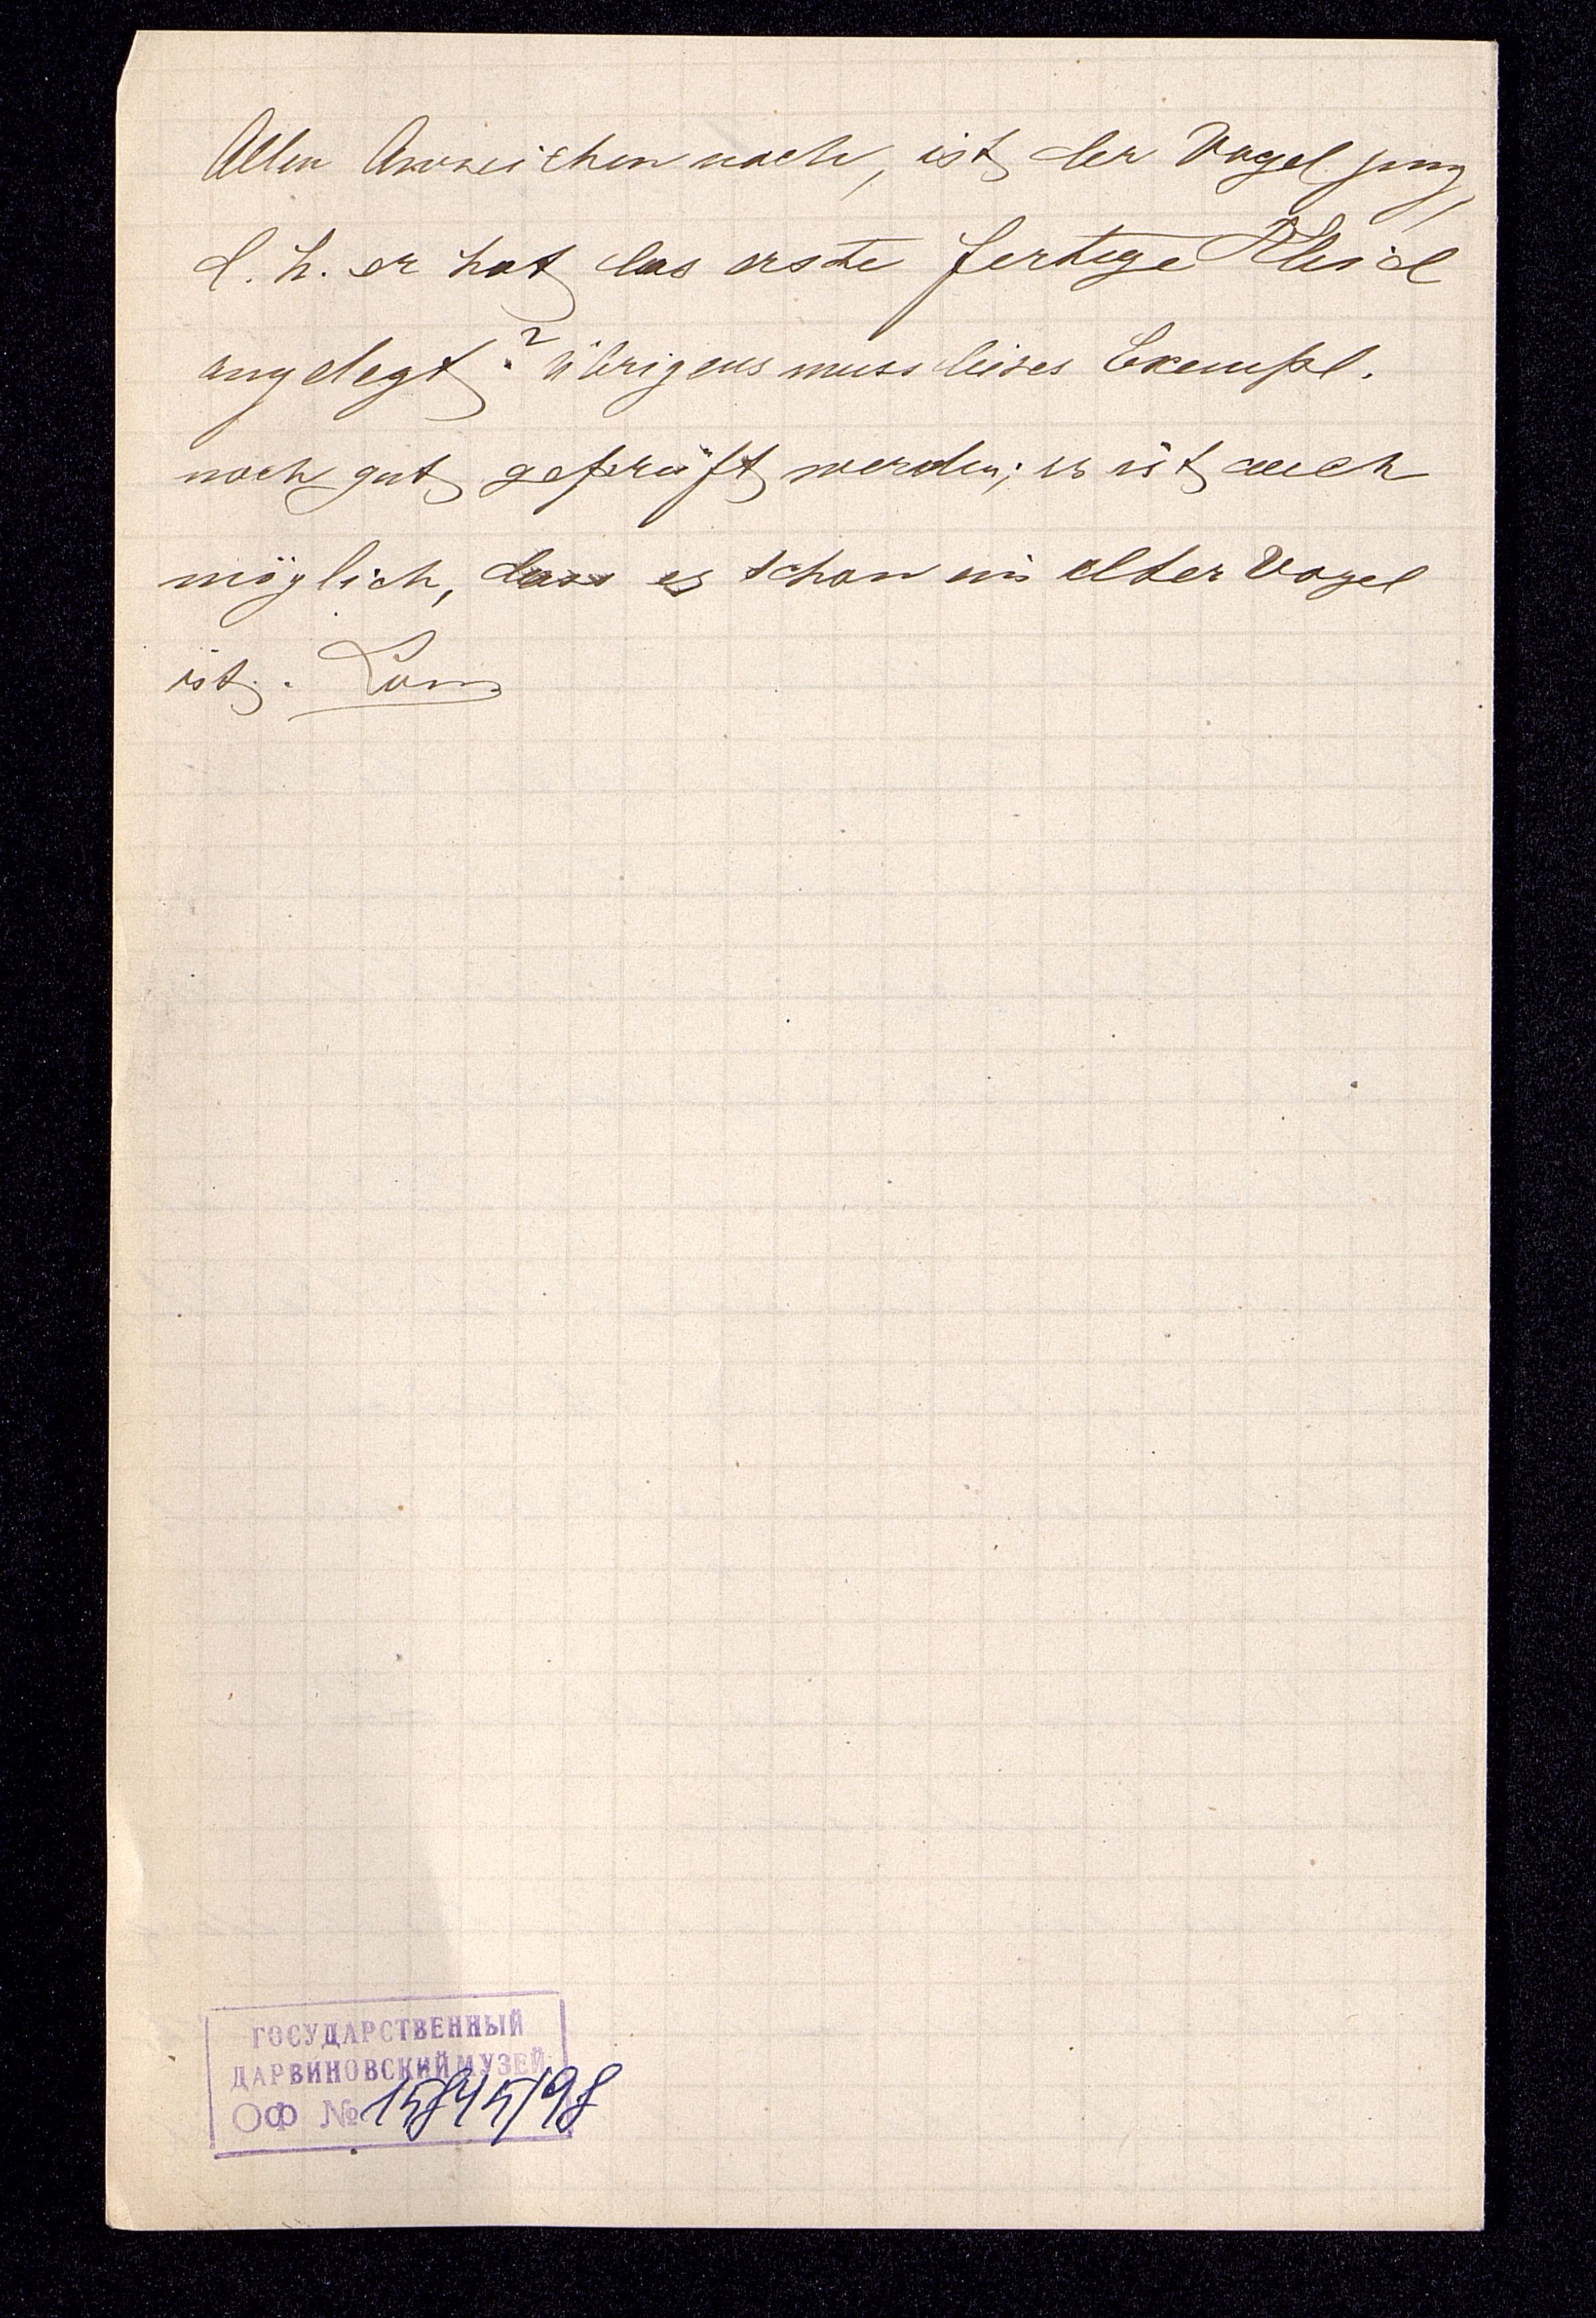 Allen Anzeichen nach, ist der Vogel jung,
d. h. er hat das erste fertige Kleid
angelegt? übrigens muss dieses Exempl.
noch gut geprüft werden; es ist auch
möglich, dass es schon ein alter Vogel
ist. Lorn
ГОСУДАРСТВЕННЫЙ
ДАРВИНОВСКИЙ МУЗЕЙ
ОФ № 15845/98